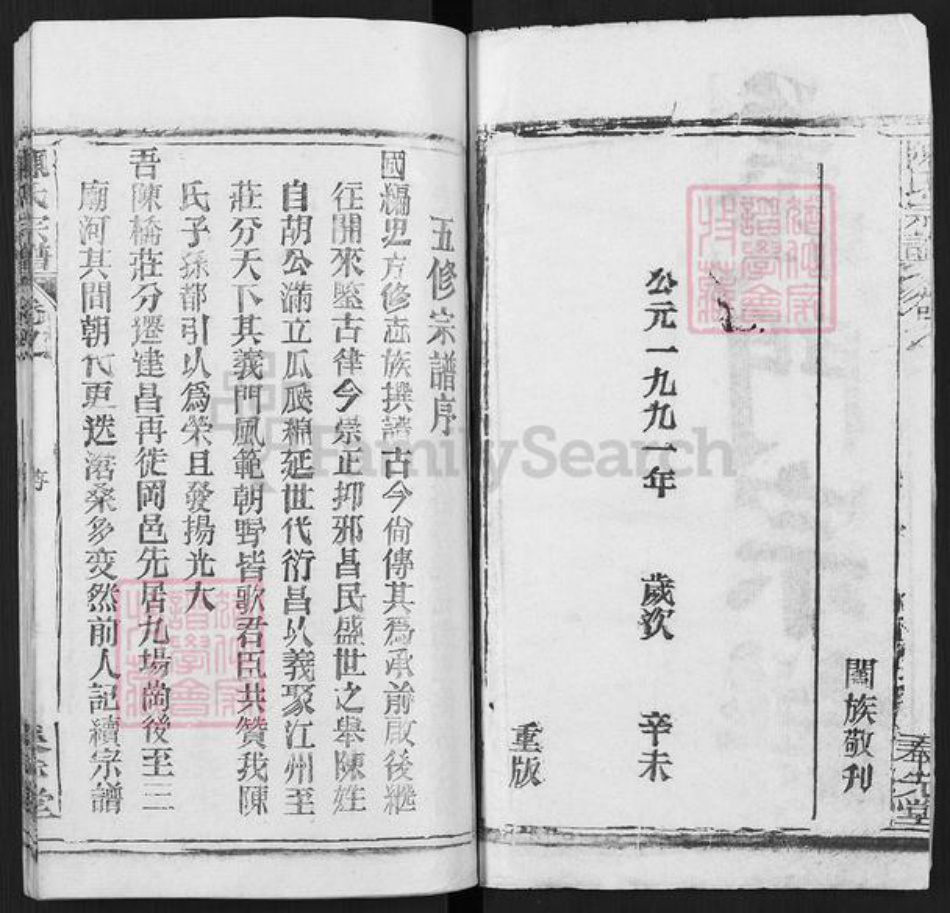 陳氏宗譜
奉先堂
闔族敬刊
公元一九九一年 歲次 辛未
重版
五修宗譜序
國編史方修志族撰譜古今尙傳其爲承前啟後継
往開來鑒古律今崇正抑邪昌民盛世之舉陳姓
自胡公滿立瓜瓞綿延世代衍昌以義聚江州至
莊分天下其義門風範朝野皆歌君臣共贊我陳
氏子孫都引以爲榮且發揚光大
吾陳橋莊分遷建昌再徙岡邑先居九場崗後至三
廟河其間朝代更迭滄桑多変然前人記續宗譜
陳氏宗譜
序
奉先堂
FamilySearch